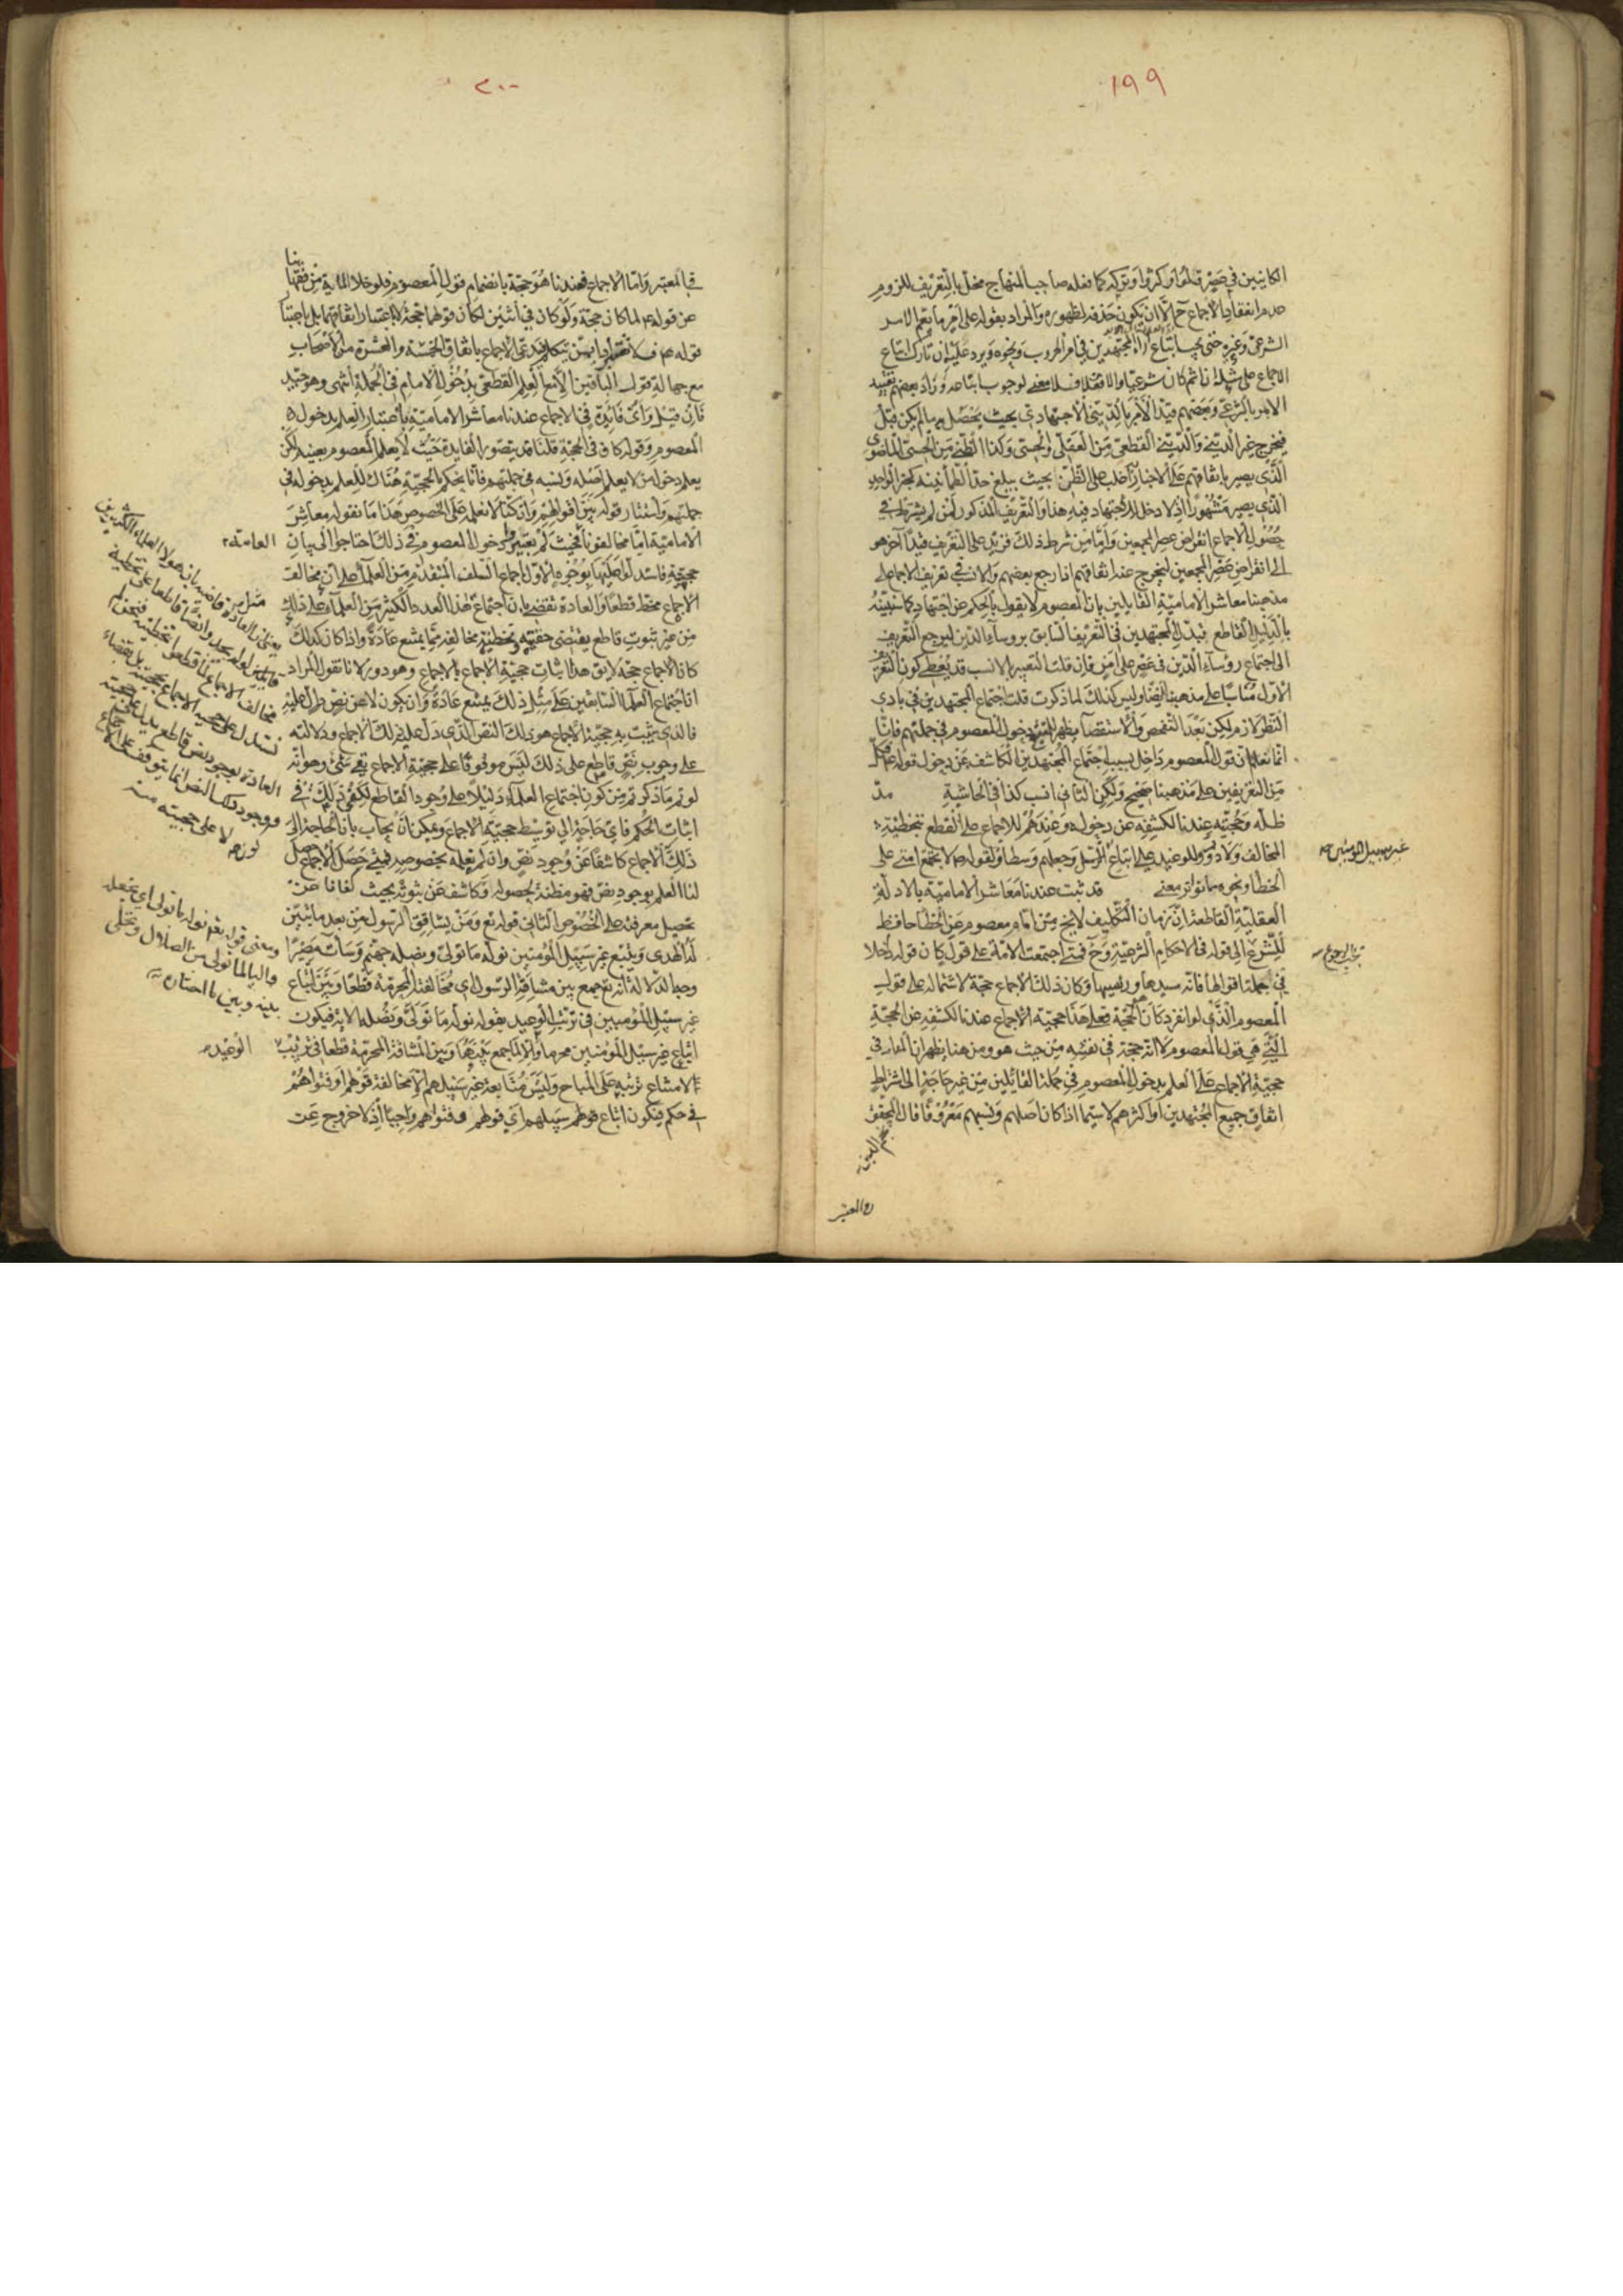 ١٩٩
الكائنين في عصر قلوا او كثروا وتركه كما فعله صاحب المنهاج مخل بالتعريف للزوم
عدم انعقاد الاجماع ح الا ان يكون حذفه لظهوره والمراد بقوله على امر ما يعم الامر
الشرعي وغيره حتى يجب اتباع آراء المجتهدين في امر الحروب ونحوه ويرد عليه ان تارك اتباع
الاجماع على مثله اثم كان شرعيا والا فلا معنى لوجوب اتباعه وزاد بعضهم تقييد
الامر بالشرعي وبعضهم قيد الامر بالديني الاجتهادي بحيث يحصل به ما لم يكن قبل
فيخرج غير الديني والديني القطعي من العقلي والحسي وكذا الظني من الحسي الماضوي
الذي يصير باتفاقهم على الاخبار اغلب على الظن بحيث يبلغ حد الطمأنينة كخبر الواحد
الذي يصير مشهورا اذ لا دخل للاجتهاد فيه هذا والتعريف المذكور لمن لم يشترط في
حصول الاجماع انقراض عصر المجمعين واما من شرط ذلك فزيد على التعريف قيدا آخر هو
الى انقراض عصر المجمعين ليخرج عنه اتفاقهم اذا رجع بعضهم والانسب في تعريف الاجماع على
مذهبنا معاشر الامامية القايلين بان المعصوم لا يقول بالحكم عن اجتهاد كما سنبينه
بالدليل القاطع تبديل المجتهدين في التعريف السابق برؤساء الدين ليرجع التعريف
الى اجتماع رؤساء الدين في عصر على امر فان قلت التعبير بالانسب قد يعطي كون التعريف
الاول مناسبا على مذهبنا ايضا وليس كذلك لما ذكرت قلت اجتماع المجتهدين في بادي
النظر لازم لكن بعد التفحص والاستقصاء يظهر دخول المعصوم في جملتهم فانا
انما نعلم ان قول المعصوم داخل بسبب اجتماع المجتهدين الكاشف عن دخول قوله فكل
من التعريفين على مذهبنا صحيح ولكن الثاني انسب كذا في الحاشية مد
ظله وحجيته عندنا لكشفه عن دخوله وعندهم للاجماع على القطع بتخطئة
المخالف وللوعيد على اتباع وجعلهم وسطا ولقوله لا تجتمع امتي على
الخطا ونحوه مما تواتر معنى قد ثبت عندنا معاشر الامامية بالادلة
العقلية القاطعة ان زمان التكليف لا يخ من امام معصوم عن الخطا حافظ
للشرع الى قوله في الاحكام الشرعية وح فمتى اجتمعت الامة على قول كان قوله داخلا
في جملة اقوالها فانه سيدها ورئيسها وكان ذلك الاجماع حجة لاشتماله على قول
المعصوم الذي لو انفرد كان الحجة فعلى هذا حجية الاجماع عندنا لكشفه عن الحجة
التي هي قول المعصوم لا انه حجة في نفسه من حيث هو ومن هنا يظهر ان المدار في
حجية الاجماع على العلم بدخول المعصوم في جملة القائلين من غير حاجة الى اشتراط
اتفاق جميع المجتهدين او اكثرهم لا سيما اذا كان اصلهم ونسبهم معروفا قال المحقق
نجم الدين
في المعتبر
غير سبيل المؤمنين
يجب الرجوع
٢٠٠
في المعتبر واما الاجماع فعندنا هو حجة بانضمام قول المعصوم فلو خلا المائة من فقهائنا
عن قوله لما كان حجة ولو كان في اثنين لكان قولهما حجة لا باعتبار اتفاقهما بل باعتبار
قوله فلا تغتر اذا بمن يتحكم فيدعي الاجماع باتفاق الخمسة والعشرة من الاصحاب
مع جهالة قول الباقين الا مع العلم القطعي بدخول الامام في الجملة انتهى وهو جيد
فان قيل واي فائدة في الاجماع عندنا معاشر الامامية باعتبار العلم بدخول
المعصوم وقوله كاف في الحجة قلنا قد يتصور الفايدة حيث لا يعلم المعصوم بعينه لكن
يعلم دخول من لا يعلم اصله ونسبه في جملتهم فانا نحكم بالحجية هناك للعلم بدخوله في
جملتهم واستتار قوله بين اقوالهم وان كنا لا نعلمه على الخصوص هذا ما نقوله معاشر
الامامية اما مخالفونا فحيث لم يعتبروا دخول المعصوم في ذلك احتاجوا الى بيان
حجيته فاستدلوا عليها بوجوه الاول اجماع السلف المتقدم من العلماء على ان مخالف
الاجماع مخطئ قطعا والعادة تقتضي بان اجتماع هذا العدد الكثير من العلماء على ذلك
من غير ثبوت قاطع يقتضي حقيته وتخطئة مخالفه مما يمتنع عادة واذا كان كذلك
كان الاجماع حجة لا يق هذا اثبات حجية الاجماع بالاجماع وهو دور لانا نقول المراد
ان اجتماع العلماء السابقين على مثل ذلك يمتنع عادة وان يكون لا عن نص
فالذي يثبت به حجية الاجماع هو ذلك النص الذي دل عليه ذلك الاجماع ودلالته
على وجوب نص قاطع على ذلك ليس موقوفا على حجية الاجماع بقي شئ وهو انه
لو تم ما ذكرتم من كون اجتماع العلماء دليلا على وجود القاطع لكفى ذلك في
اثبات الحكم فاي حاجة الى توسيط حجية الاجماع ويمكن ان يجاب بان الحاجة الى
ذلك الاجماع كاشفا عن وجود نص وان لم نعلمه بخصوصه فمتى حصل الاجماع حصل
لنا العلم بوجود نص فهو مظنة لحصوله وكاشف عن ثبوته بحيث كفانا عن
تحصيل معرفته على الخصوص الثاني قوله تع ومن يشاقق الرسول من بعد ما تبين
له الهدى ويتبع غير سبيل المؤمنين نوله ما تولى ونصله جهنم وسائت مصيرا
وجه الدلالة انه تع جمع بين مشاقة الرسول اي مخالفته المحرمة قطعا وبين اتباع
غير سبيل المؤمنين في ترتب الوعيد بقوله نوله ما تولى ونصله الاية فيكون
اتباع غير سبيل المؤمنين محرما والا لما جمع بينها وبين المشاقة المحرمة قطعا في ترتيب
الوعيد
لامتناع ترتبه على المباح وليس متابعة غير سبيلهم الا مخالفة قولهم او فتواهم
في حكم فيكون اتباع سبيلهم اي قولهم وفتواهم واجبا اذ لا خروج عن
العامة
ومعنى قوله تعم نوله ما تولى اي نجعله
واليا لما تولى من الضلال ونخلي
بينه وبين ما اختاره